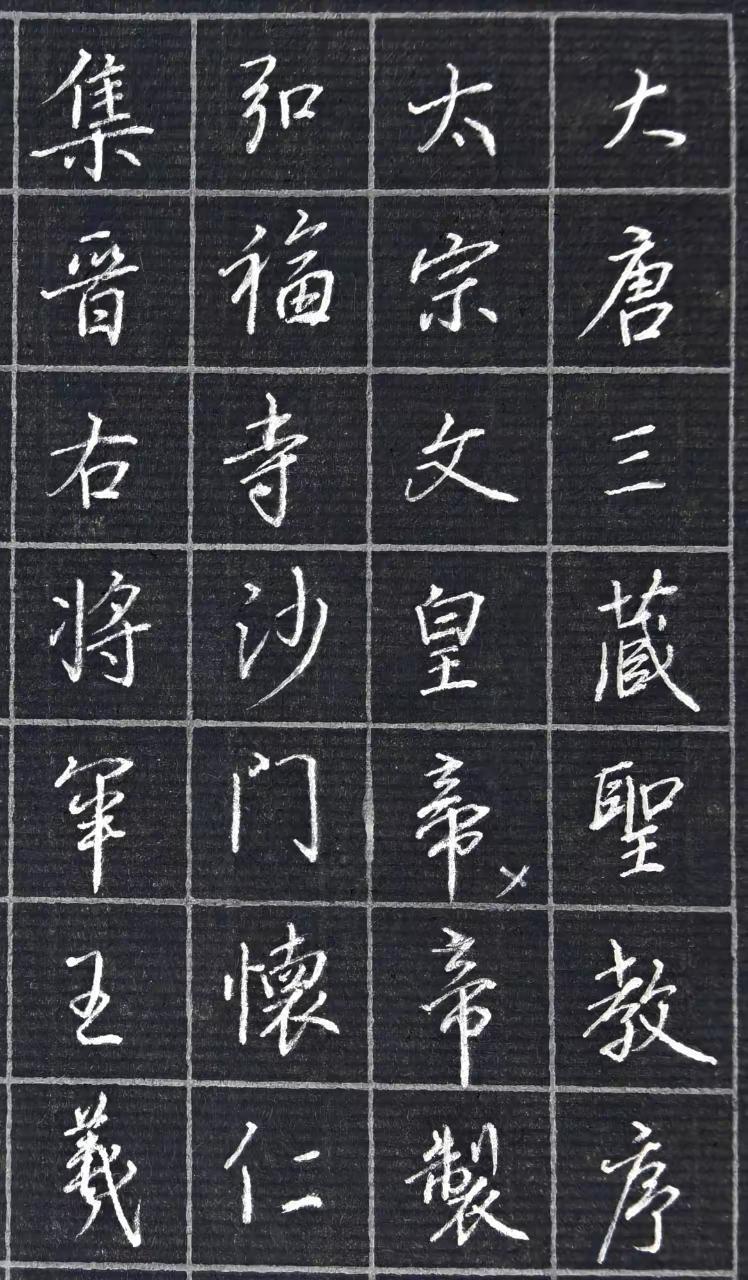 大唐三藏聖教序
太宗文皇帝×帝製
弘福寺沙门懷仁
集晋右将軍王羲